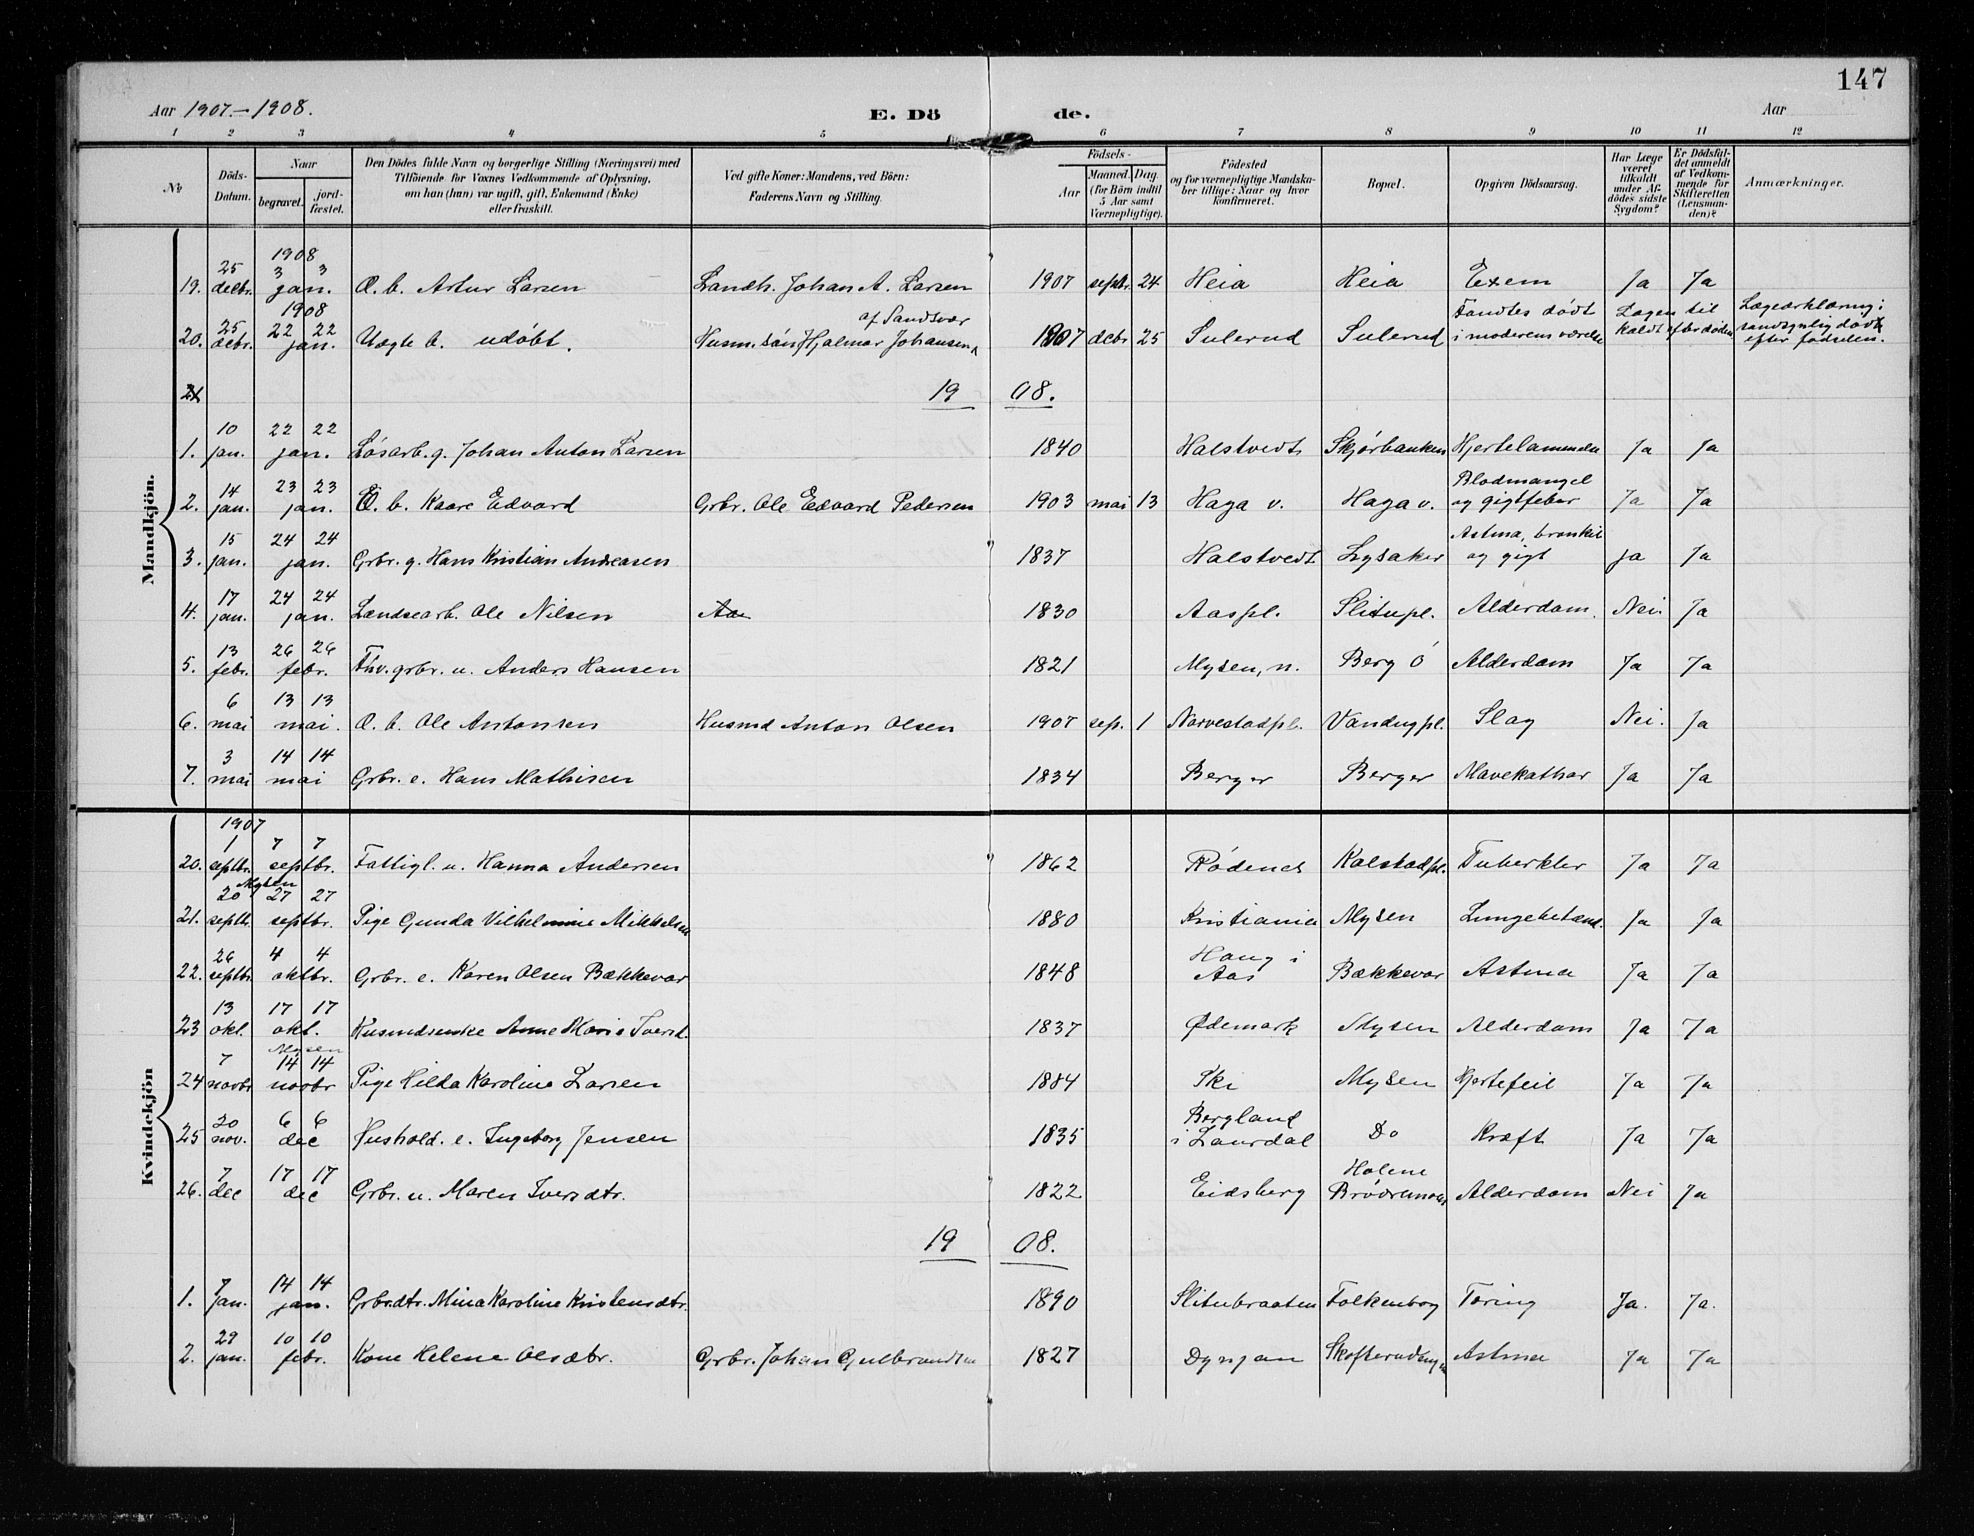 147
Aar 1907.-1908.
E. Dö
de.
Aar
1 2 3 4 5 6 7 8 9 10 11 12
No
Döds-
Datum.
Naar
begravet.
jord-
fæstet.
Den Dödes fulde Navn og borgerlige Stilling (Næringsvei) med
Tilföiende for Voxnes Vedkommende af Oplysning,
om han (hun) var ugift, gift, Enkemand (Enke)
eller fraskilt.
Ved gifte Koner: Mandens, ved Börn:
Faderens Navn og Stilling.
Födsels-
Aar
Maaned. Dag.
(for Börn indtil
5 Aar samt
Værnepligtige).
Födested
og for værnepligtige Mandska-
ber tillige: Naar og hvor
konfirmeret.
Bopæl.
Opgiven Dödsaarsag.
Har Læge
været
tilkaldt
under Af-
dödes sidste
Sygdom?
Er Dödsfal-
det anmeldt
af Vedkom-
mende for
Skifteretten
(Lensman-
den)?
Anmærkninger.
Mandkjön.
1908
25 3 3
19. decbr. jan. Æ. b. Artur Larsen Landh. Johan A. Larsen 1907 septr. 24 Heia Heia Exem Ja Ja
1908
25 22 22 af Sandsvær Fandtes dödt Lægen til Lægeerklæring:
20. decbr. jan. Uægte b. udöbt. Husm. sön Hjalmar Johansen 1907 decbr 25 Sulerud Sulerud i moderens værelse kaldt efter döden sandsynlig död
efter fødselen.
21 19 08.
10 22 22
1. jan. jan. Løsarb. g. Johan Anton Larsen 1840 Halstvedt Skjørbanken Hjertelammelse Ja Ja
14 23 23 Blodmangel
2. jan. jan. Æ. b. Kaare Edvard Grbr. Ole Edvard Pedersen 1903 mai 13 Haga v. Haga v. og gigtfeber Ja Ja
15 24 24 Astma, bronkit
3. jan. jan. Grbr. g. Hans Kristian Andreasen 1837 Halstvedt Lysaker og gigt ja Ja
17 24 24
4. jan. jan. Lændsearb. Ole Nilsen Aa 1830 Aaspl. Slitupl. Alderdom. Nei. Ja
13 26 26
5. febr. febr. Fhv. grbr. u. Anders Hansen 1821 Mysen, n. Berg ö Alderdom Ja Ja
6 13 13
6. mai mai. Æ. b. Ole Antonsen Husmd Anton Olsen 1907 sep. 1 Narvestadpl. Vandugpl. Slag Nei. Ja
3 14 14
7. mai mai Grbr. e. Hans Mathisen 1834 Berger Berger Mavekathar Ja Ja
Kvindekjön
1907
1 7 7
20. septbr. septbr. Fattigl. u. Hanna Andersen 1862 Rödenes Kalstadpl. Tuberkler Ja Ja
Mysen
20 27 27
21. septbr. septbr. Pige Gunda Vilhelmine Mikkelsen 1880 Kristiania Mysen Lungebetænd. Ja Ja
26 4 4 Haug i
22. septbr. oktbr. Grbr. e. Karen Olsen Bækkevar 1848 Aas Bækkevar Astma Ja Ja
13 17 17
23 okt. okt. Husmdsenke Anne Marie Iversd. 1837 Ødemark Mysen Alderdom Ja Ja
Mysen
7 14 14
24 novbr novbr Pige Hilda Karoline Larsen 1884 Ski Mysen Hjertefeil Ja Ja
20 6 6 Bergland
25 nov. dec Hushold. e. Ingeborg Jensen 1835 i Laurdal Do Kræft Ja Ja
7 17 17 Holene
26. dec dec Grbr. u. Maren Iversdtr. 1822 Eidsberg Alderdom Nei Ja
19 08.
7 14 14
1. Jan. jan. Grbrdtr. Mina Karoline Kristensdtr. 1890 Slitubraaten Folkenborg Tæring Ja. Ja.
29 10 10
2. jan. febr. Kone Helene Olsdtr. Grbr. Johan Gulbrandsen 1827 Dynjan Astma Ja Ja